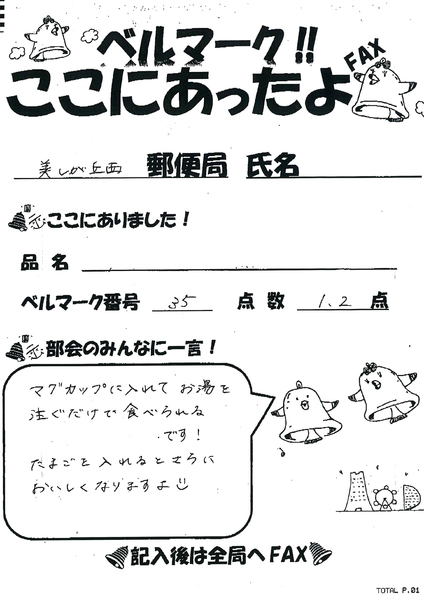 ベルマーク!!
ここにあったよ
FAX
美しが丘西 郵便局 氏名
ここにありました！
品名
ベルマーク番号 35 点数 1.2 点
部会のみんなに一言！
マグカップに入れて お湯を
注ぐだけで 食べられる
です！
たまごを 入れるとさらに
おいしくなりますよ
記入後は全局へFAX
TOTAL P.01